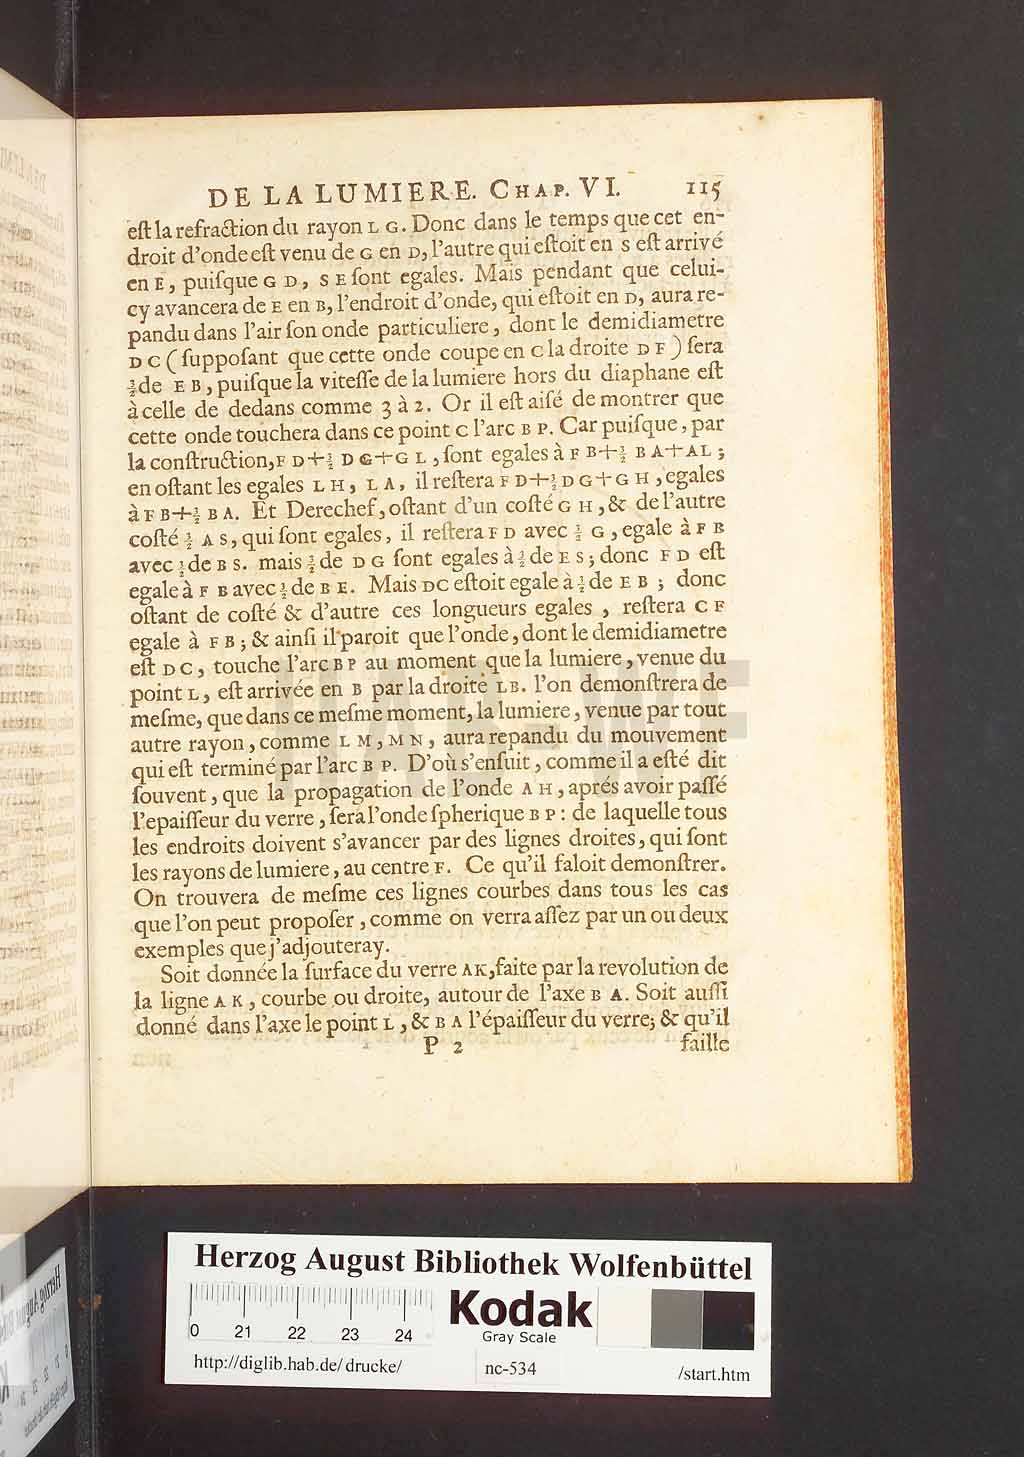 DE LA LUMIERE. CHAP. VI. 115
eſt la refraction du rayon L G. Donc dans le temps que cet en-
droit d'onde eſt venu de G en D, l'autre qui eſtoit en S eſt arrivé
en E, puiſque G D, S E ſont egales. Mais pendant que celui-
cy avancera de E en B, l'endroit d'onde, qui eſtoit en D, aura re-
pandu dans l'air ſon onde particuliere, dont le demidiametre
D C (ſuppoſant que cette onde coupe en C la droite D F) ſera
3/2 de E B, puiſque la viteſſe de la lumiere hors du diaphane eſt
à celle de dedans comme 3 à 2. Or il eſt aiſé de montrer que
cette onde touchera dans ce point C l'arc B P. Car puiſque, par
la conſtruction, F D + 3/2 D G + G L, ſont egales à F B + 3/2 B A + A L;
en oſtant les egales L H, L A, il reſtera F D + 3/2 D G + G H, egales
à F B + 3/2 B A. Et Derechef, oſtant d'un coſté G H, & de l'autre
coſté 3/2 A S, qui ſont egales, il reſtera F D avec 3/2 G, egale à F B
avec 3/2 de B S. mais 3/2 de D G ſont egales à 3/2 de E S; donc F D eſt
egale à F B avec 3/2 de B E. Mais D C eſtoit egale à 3/2 de E B; donc
oſtant de coſté & d'autre ces longueurs egales, reſtera C F
egale à F B; & ainſi il paroit que l'onde, dont le demidiametre
eſt D C, touche l'arc B P au moment que la lumiere, venue du
point L, eſt arrivée en B par la droite L B. l'on demonſtrera de
meſme, que dans ce meſme moment, la lumiere, venue par tout
autre rayon, comme L M, M N, aura repandu du mouvement
qui eſt terminé par l'arc B P. D'où s'enſuit, comme il a eſté dit
ſouvent, que la propagation de l'onde A H, aprés avoir paſſé
l'epaiſſeur du verre, ſera l'onde ſpherique B P: de laquelle tous
les endroits doivent s'avancer par des lignes droites, qui ſont
les rayons de lumiere, au centre F. Ce qu'il faloit demonſtrer.
On trouvera de meſme ces lignes courbes dans tous les cas
que l'on peut propoſer, comme on verra aſſez par un ou deux
exemples que j'adjouteray.
Soit donnée la ſurface du verre A K, faite par la revolution de
la ligne A K, courbe ou droite, autour de l'axe B A. Soit auſſi
donné dans l'axe le point L, & B A l'épaiſſeur du verre; & qu'il
P 2 faille
Herzog August Bibliothek Wolfenbüttel
0 21 22 23 24
Kodak
Gray Scale
http://diglib.hab.de/drucke/ nc-534 /start.htm